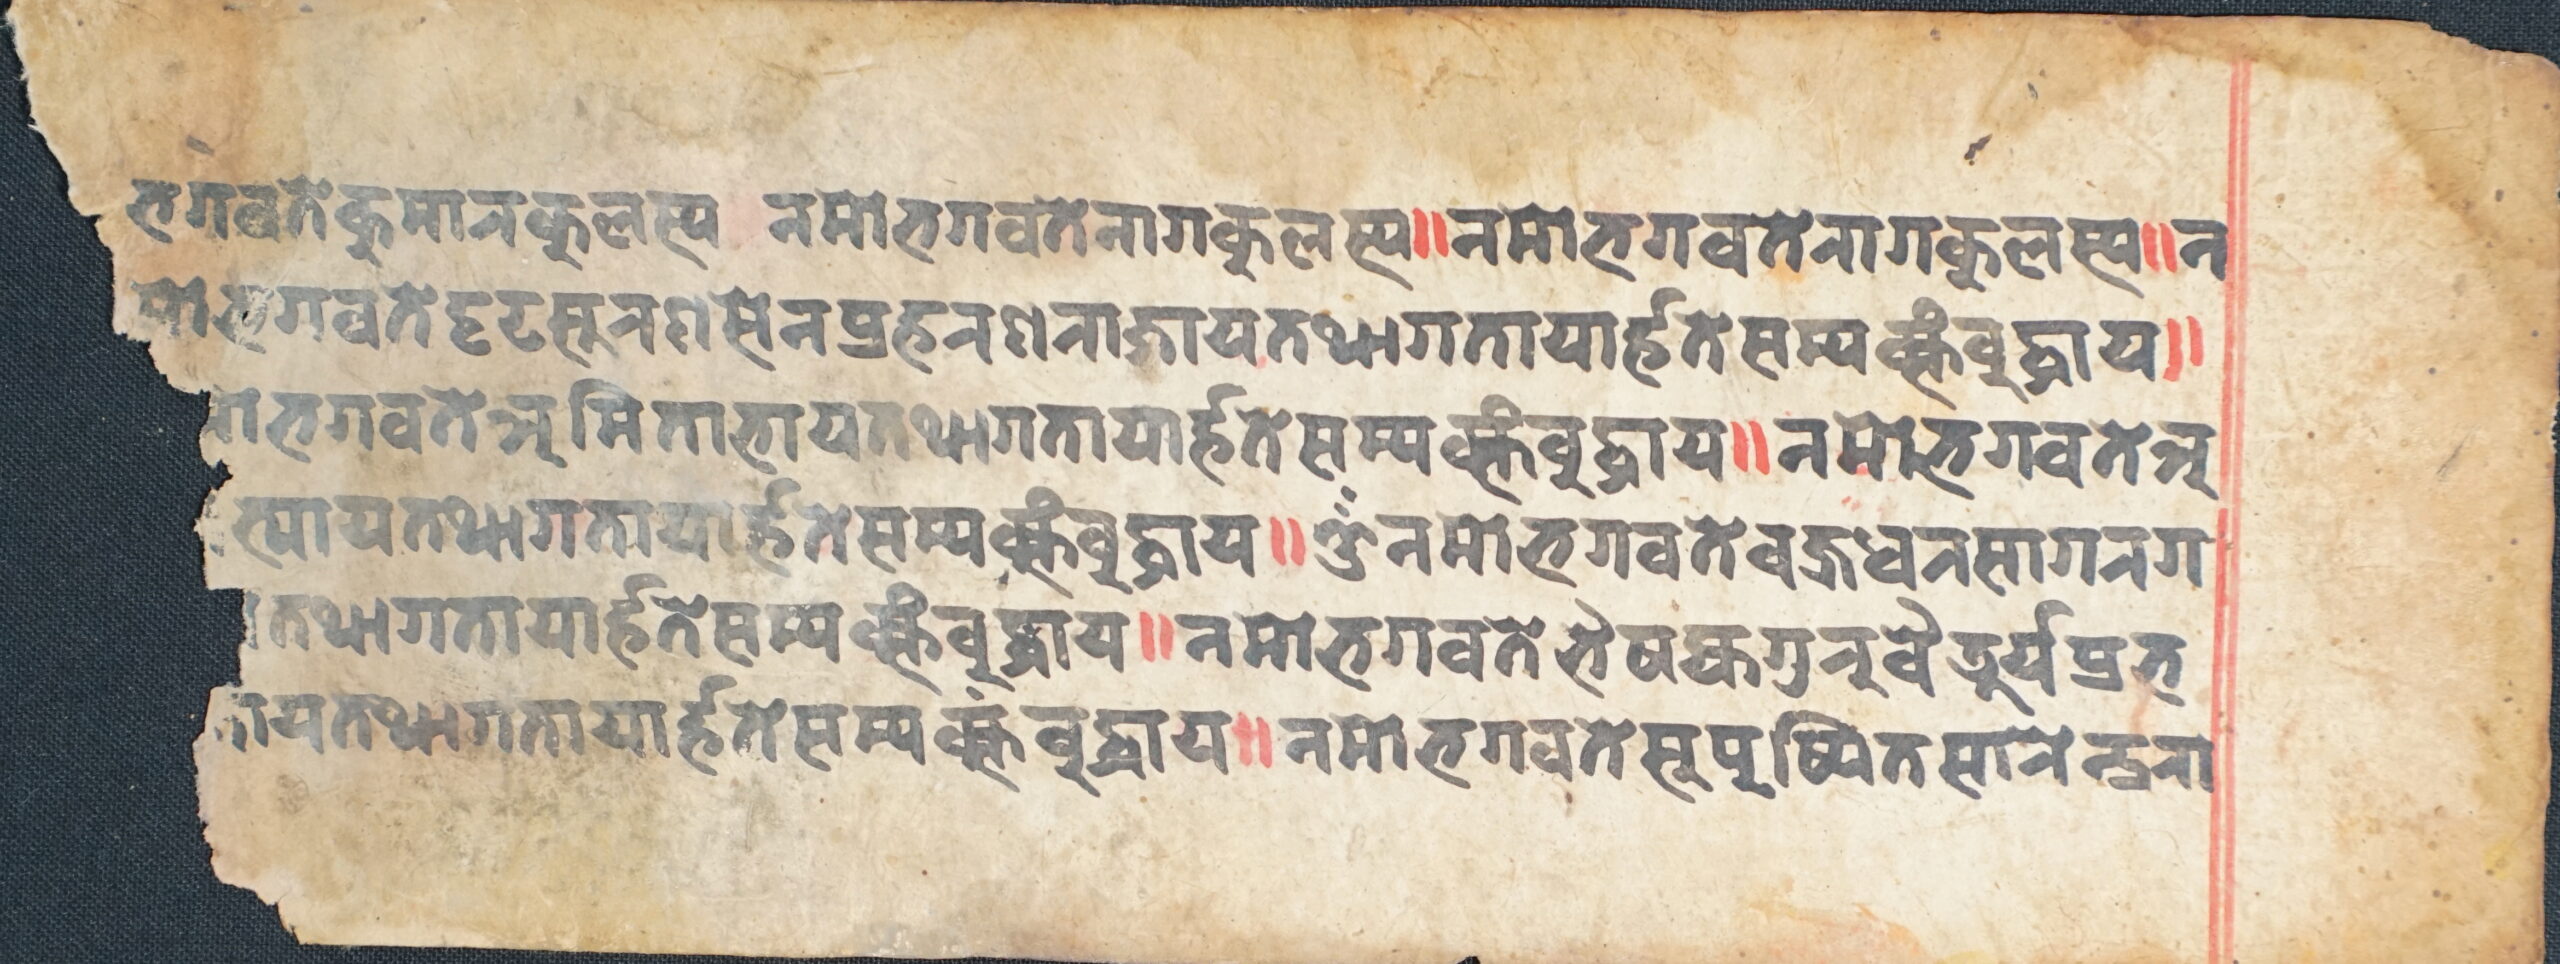 भगवते कुमारकुलस्य नमो भगवते नागकुलस्य॥ नमो भगवते नागकुलस्य॥ न
मो भगवते दृढसुरणसेनप्रहरणराजाय तथागतायार्हते सम्यक्संबुद्धाय॥
मो भगवते अमिताभाय तथागतायार्हते सम्यक्संबुद्धाय॥ नमो भगवते अ
भ्याय तथागतायार्हते सम्यक्संबुद्धाय॥ ॐ नमो भगवते वज्रधरसागरग
तथागतायार्हते सम्यक्संबुद्धाय॥ नमो भगवते भैषज्यगुरुवैडूर्यप्रभ
जाय तथागतायार्हते सम्यक्संबुद्धाय॥ नमो भगवते सुपुष्पितसारेन्द्ररा